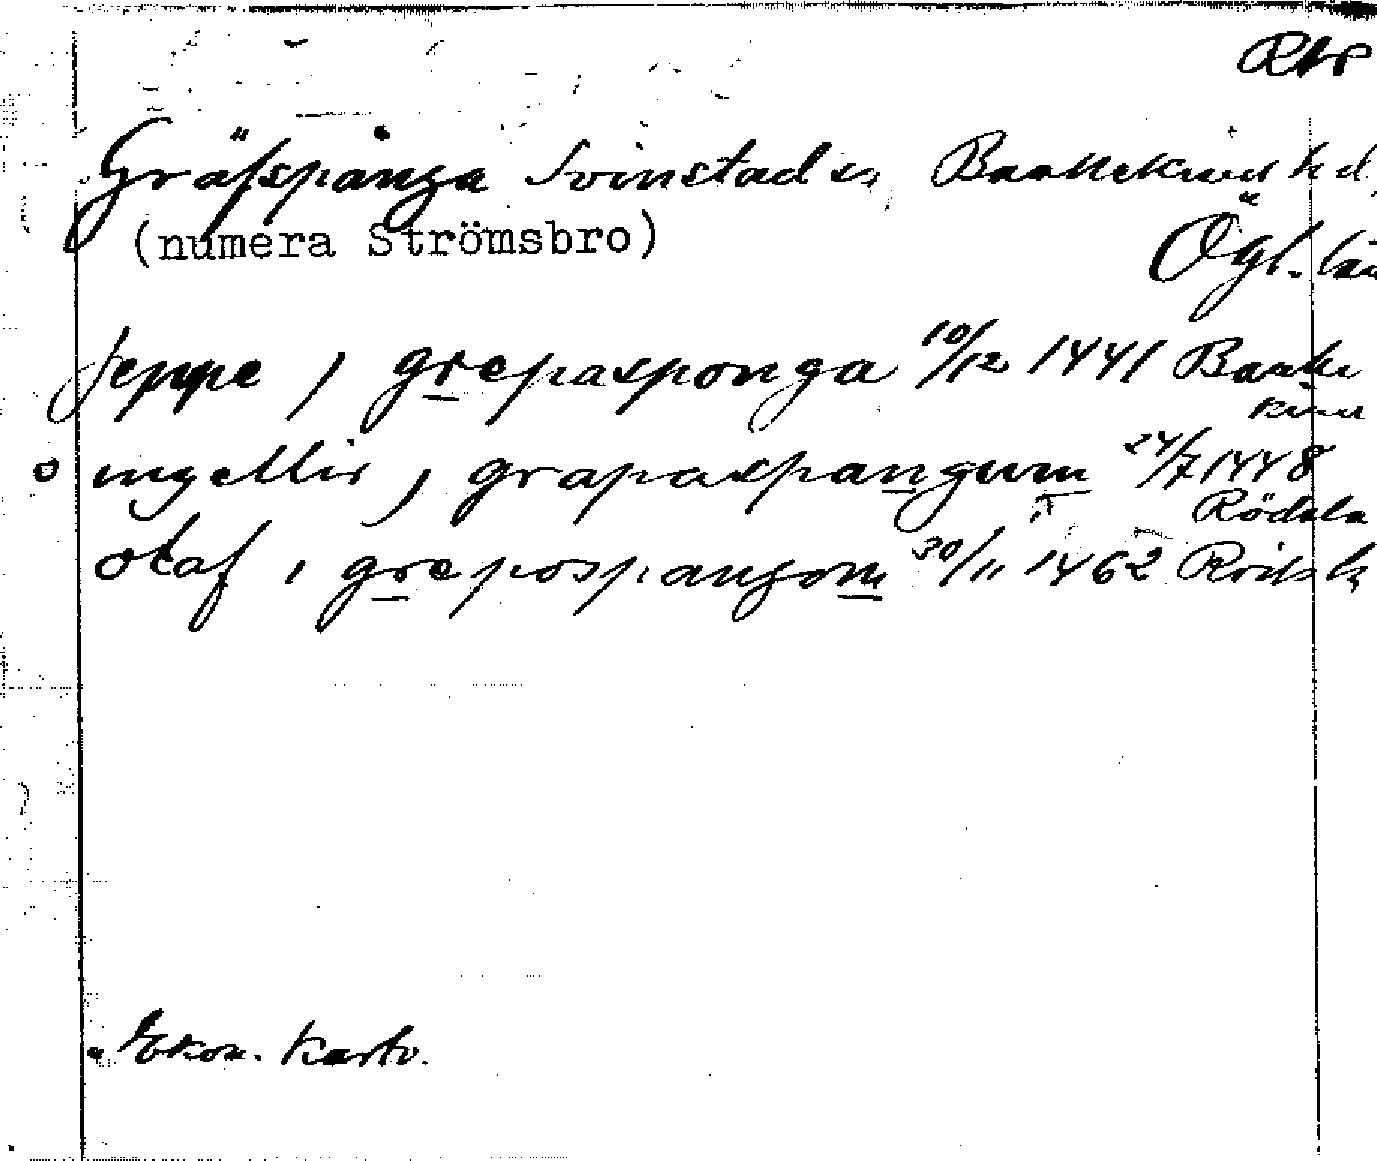 Gräfspånga Svinstad sn Bankekind hd
(numera Strömsbro)
Ögl. län
Jeppe i grepasponga 10/12 1441 Banke
kind
o ingellir i grapaspangum 24/7 1448
Rödsla
olaf i greposspangom 30/11 1462
" Ekon. Kartv.